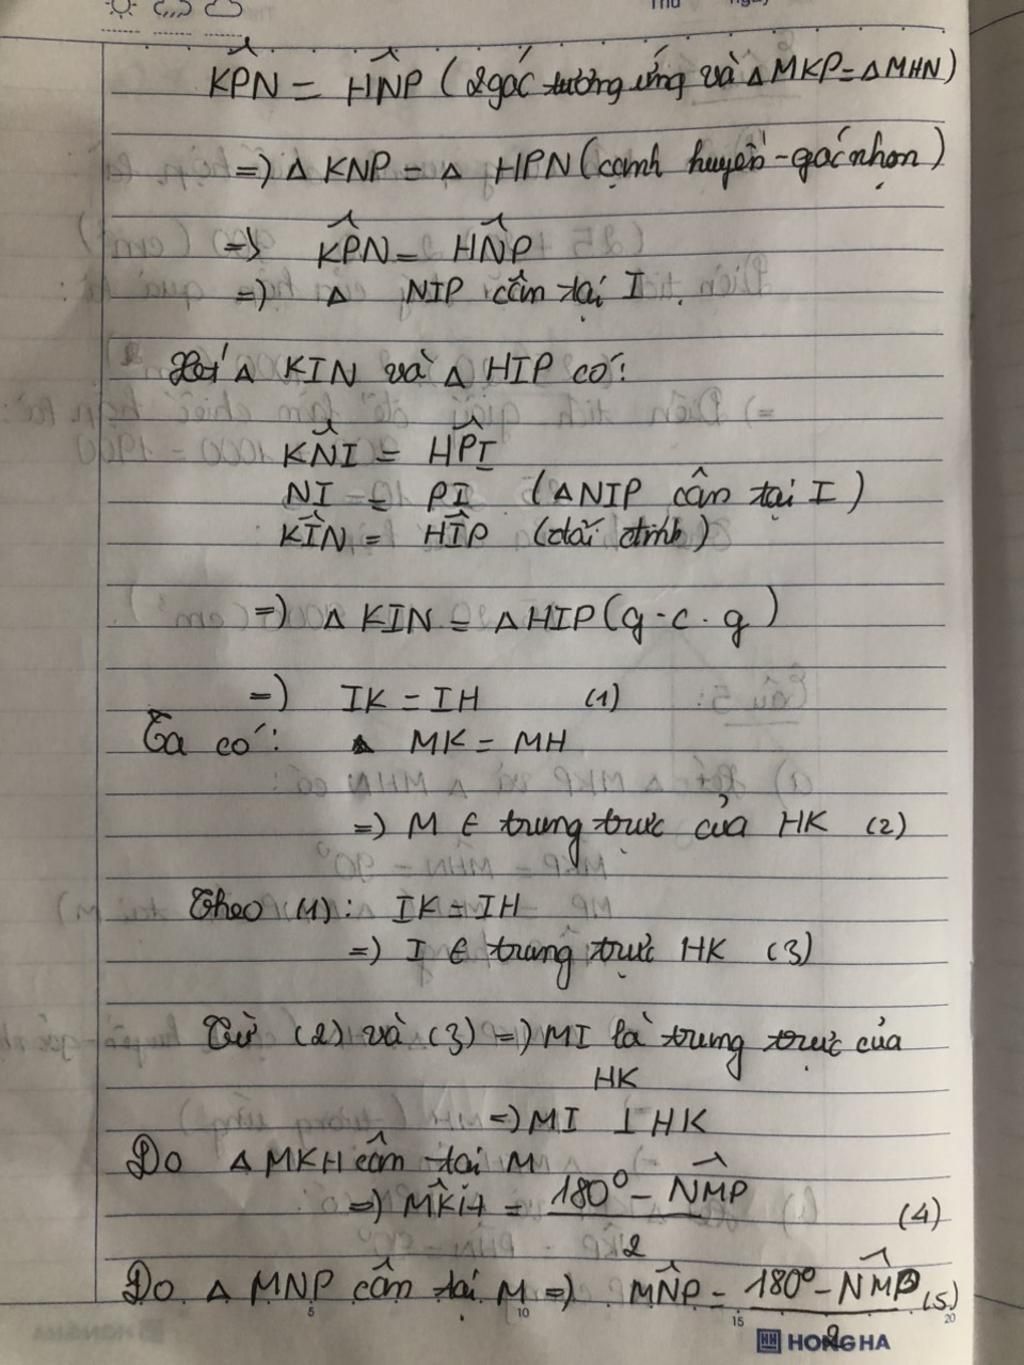 Thứ
Ngày
KPN̂ = HNP̂ (2 góc tương ứng và △MKP = △MHN)
=) △ KNP = △ HPN (cạnh huyền - góc nhọn)
=> KPN̂ = HNP̂
=) △ NIP cân tại I.
Xét △ KIN và △ HIP có:
KN̂I = HP̂I
NI = PI (△NIP cân tại I)
KÎN = HÎP (đối đỉnh)
=) △ KIN = △HIP (g.c.g)
=) IK = IH (1)
Ta có: MK = MH
=) M ∈ trung trực của HK (2)
Theo (1): IK = IH
=) I ∈ trung trực HK (3)
Từ (2) và (3) =) MI là trung trực của
HK
=) MI ⊥ HK
Do △ MKH cân tại M
=) MK̂H = (180° - NM̂P)/2 (4)
Do △ MNP cân tại M =) MN̂P = (180° - NM̂P)/2 (5)
5 10 15 20
HH HONG HA